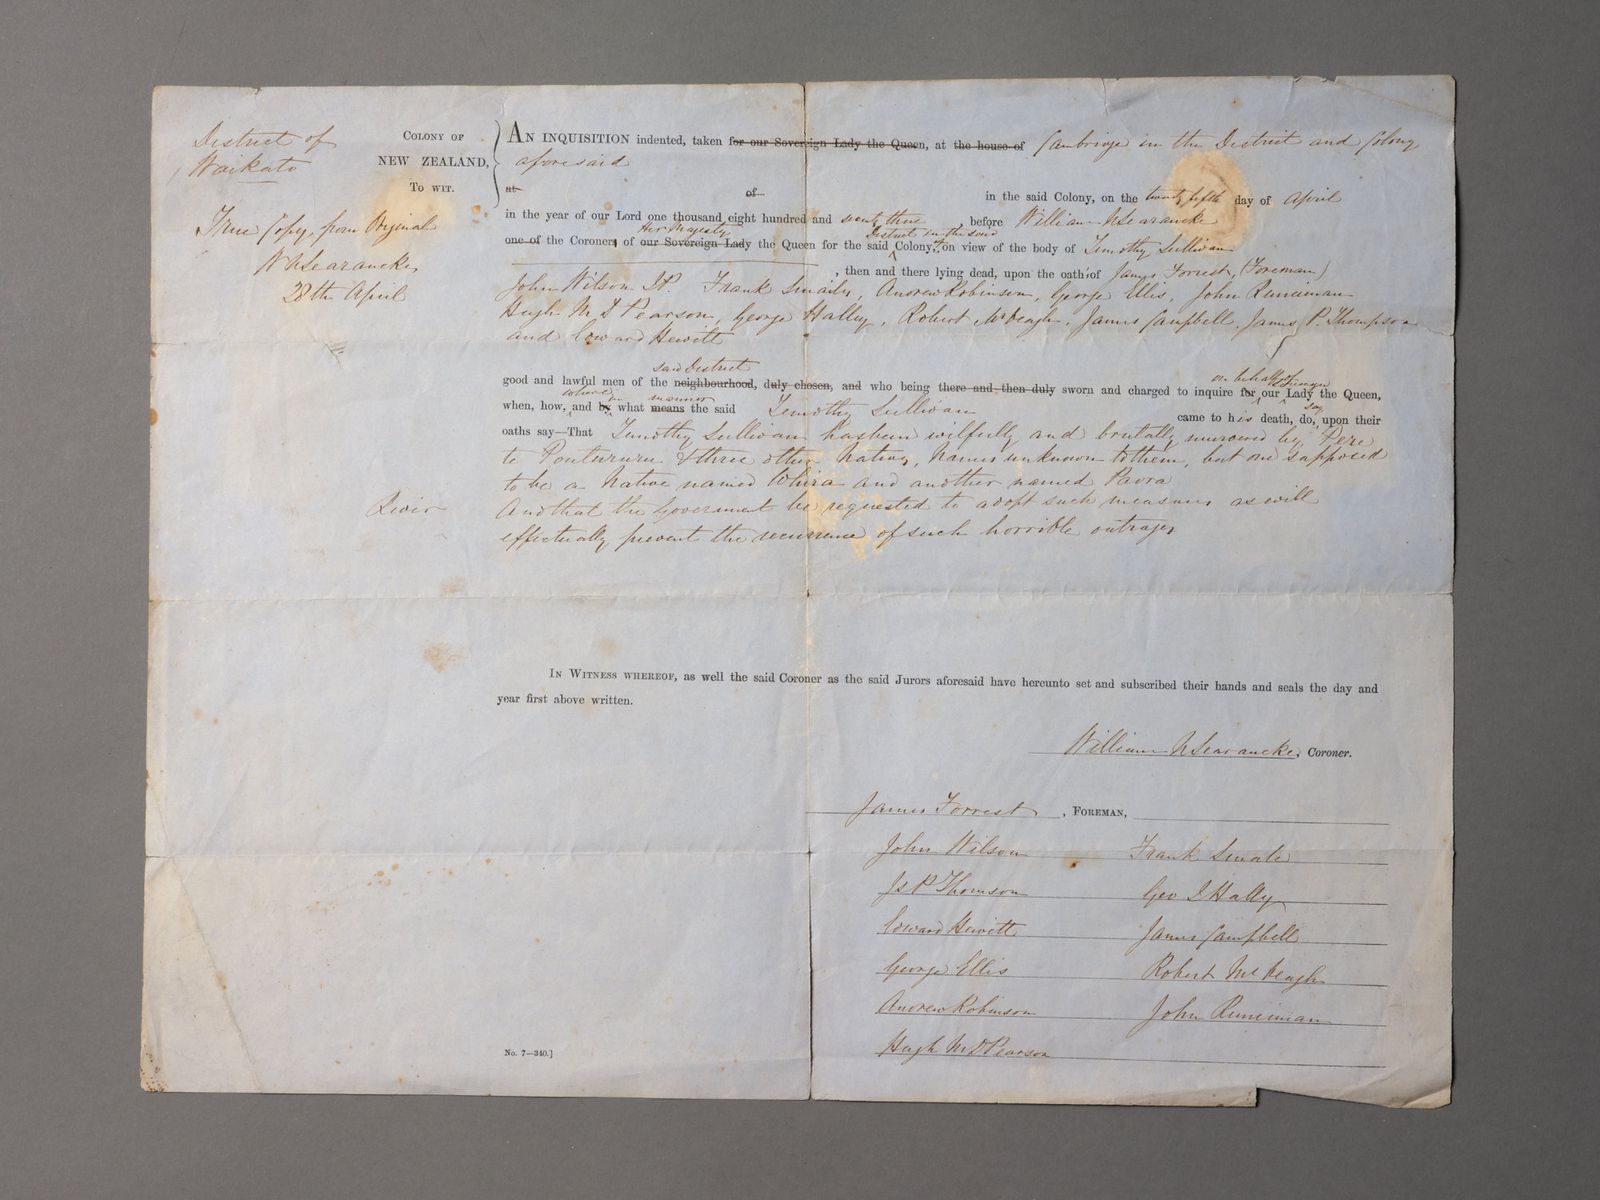 District of
Waikato
True Copy from Original
W N Searancke
28th April
COLONY OF
NEW ZEALAND,
TO WIT.
AN INQUISITION indented, taken for our Sovereign Lady the Queen, at the house of Cambridge in the District and Colony
aforesaid
at of in the said Colony, on the twenty fifth day of April
in the year of our Lord one thousand eight hundred and seventy three, before William N Searancke
Her Majesty District in the said
one of the Coroners of our Sovereign Lady the Queen for the said Colony, on view of the body of Timothy Sullivan
, then and there lying dead, upon the oath of James Forrest, (Foreman)
John Wilson J.P. Frank Smails, Andrew Robinson, George Ellis, John Runciman
Hugh McD Pearson, George Halley, Robert McVeagh, James Campbell, James P. Thompson
and Edward Hewitt
said District on behalf of Sovereign
good and lawful men of the neighbourhood, duly chosen, and who being there and then duly sworn and charged to inquire for our Lady the Queen,
where in manner say
when, how, and by what means the said Timothy Sullivan came to his death, do, upon their
oaths say—That Timothy Sullivan has been wilfully and brutally murdered by Pere
te Pouturura & three other Natives, names unknown to them, but one supposed
to be a Native named Whira and another named Paora
Rider And that the Government be requested to adopt such measures as will
effectually prevent the recurrence of such horrible outrages
IN WITNESS WHEREOF, as well the said Coroner as the said Jurors aforesaid have hereunto set and subscribed their hands and seals the day and
year first above written.
William N Searancke, Coroner.
James Forrest, FOREMAN,
John Wilson Frank Smale
Js P Thomson Geo I Hally
Edward Hewitt James Campbell
George Ellis Robert McVeagh
Andrew Robinson John Runciman
Hugh McD Pearson
No. 7—340.]